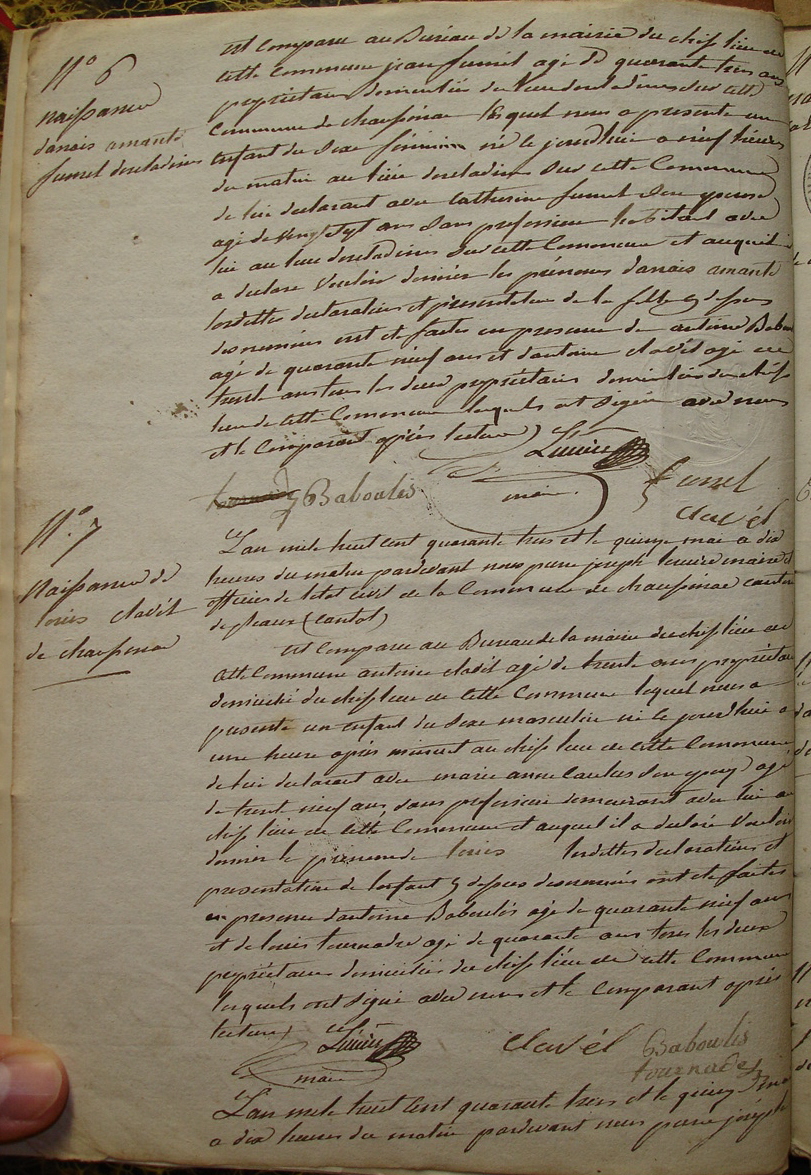 N° 6
naissance
danais amante
fumel desteladines
est comparu au Bureau de la mairie du chef lieu de
cette Commune jean fumel agé de quarante trois ans
propriétaire domicilié du lieu des cette
Commune de chaussenac lequel nous a présenté un
enfant du Sexe féminin né le jourdhui a neuf heures
du matin au lieu sur cette Commune
de lui déclarant avec Catherine fumel Son épouse
agé de Vingt Sept ans Sans profession habitant avec
lui au lieu sur cette Commune et auquel il
a déclaré Vouloir donner les prénoms danais amante
lesdittes déclaration et présentation de la fille cy dessus
denommées ont été faites en presence de antoine Baboulès
agé de quarante neuf ans et dantoine clavél agé de
trente ans tous les deux propriétaires domiciliés du chef
lieu de cette Commune lesquels ont Signé avec nous
et le Comparant après lecture
Baboulés
maire
fumel
clavél
N° 7
Naissance de
louis clavél
de chaussenac
Lan mile huit cent quarante trois et le quinze mai a dix
heures du matin pardevant nous pierre joseph maire et
officier de letat civil de la Commune de chaussenac canton
de pleaux (cantal)
est Comparu au Bureau de la mairie du chef lieu de
cette Commune antoine clavél agé de trente ans propriétaire
domicilié du chef lieu de cette Commune lequel nous a
présenté un enfant du Sexe masculin né le jourdhui a
une heure après minuit au chef lieu de cette Commune
de lui déclarant avec marie anne Son epouse agé
de trente neuf ans sans profession demeurant avec lui au
chef lieu de cette Commune et auquel il a déclaré Vouloir
donner le prénom de louis lesdittes déclaration et
présentation de lenfant cy dessus denommés ont été faites
en presence dantoine Baboulès agé de quarante neuf ans
et de louis tournadre agé de quarante ans tous les deux
propriétaires domiciliés du chef lieu de cette Commune
lesquels ont Signé avec nous et le Comparant après
lecture
maire
clavél
Baboulés
tournade
Lan mile huit cent quarante trois et le quinze mai
a dix heures du matin pardevant nous pierre joseph